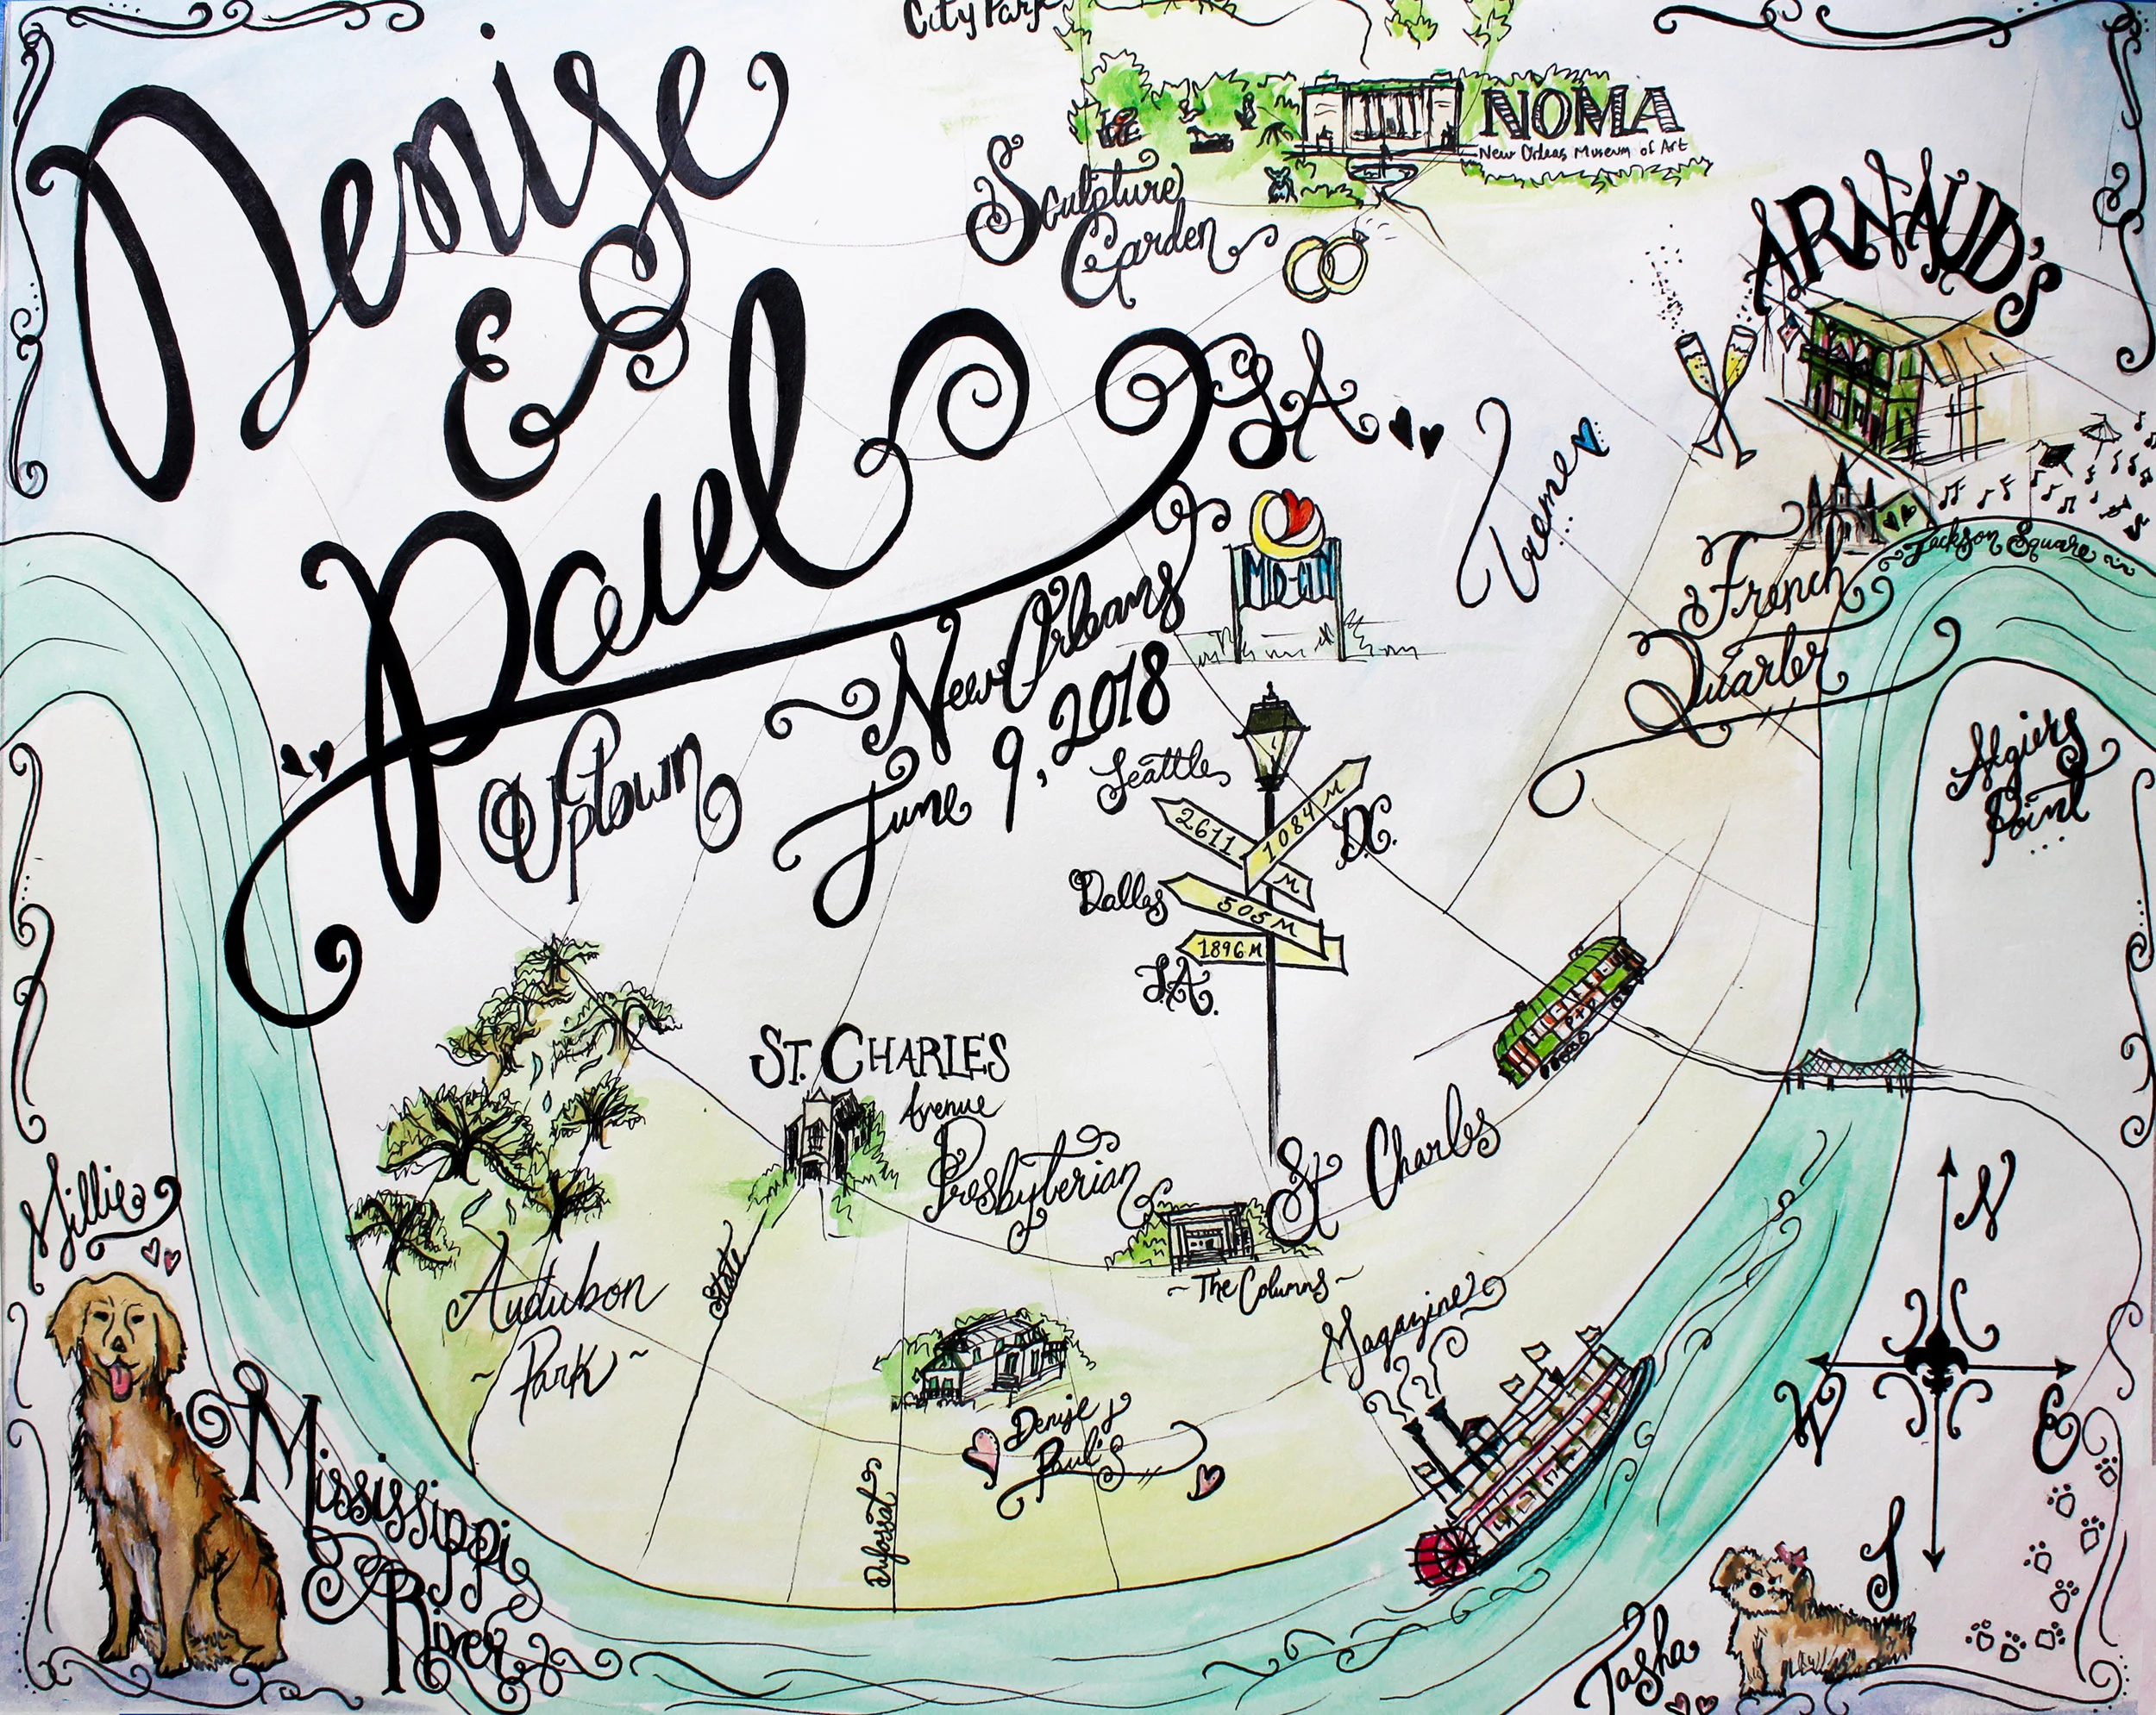 City Park
NOMA
New Orleas Museum of Art
Sculpture
Garden
ARNAUD'S
Denise
&
Paul
LA
Treme
MID-CITY
Jackson Square
French
Quarter
New Orleans
June 9, 2018
Uptown
Algiers
Point
Seattle
2611 M
1084 M
D.C.
Dallas
505 M
1896 M
LA.
ST. CHARLES
Avenue
Presbyterian
St Charles
~ The Columns ~
Audubon
~ Park ~
State
Magazine
Denise &
Paul's
Dufossat
Millie
Mississippi
River
N
W
E
S
Tasha